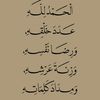 الْحَمْدُ لِلَّهِ
عَدَدَ خَلْقِهِ
وَرِضَا نَفْسِهِ
وَزِنَةَ عَرْشِهِ
وَمِدَادَ كَلِمَاتِهِ